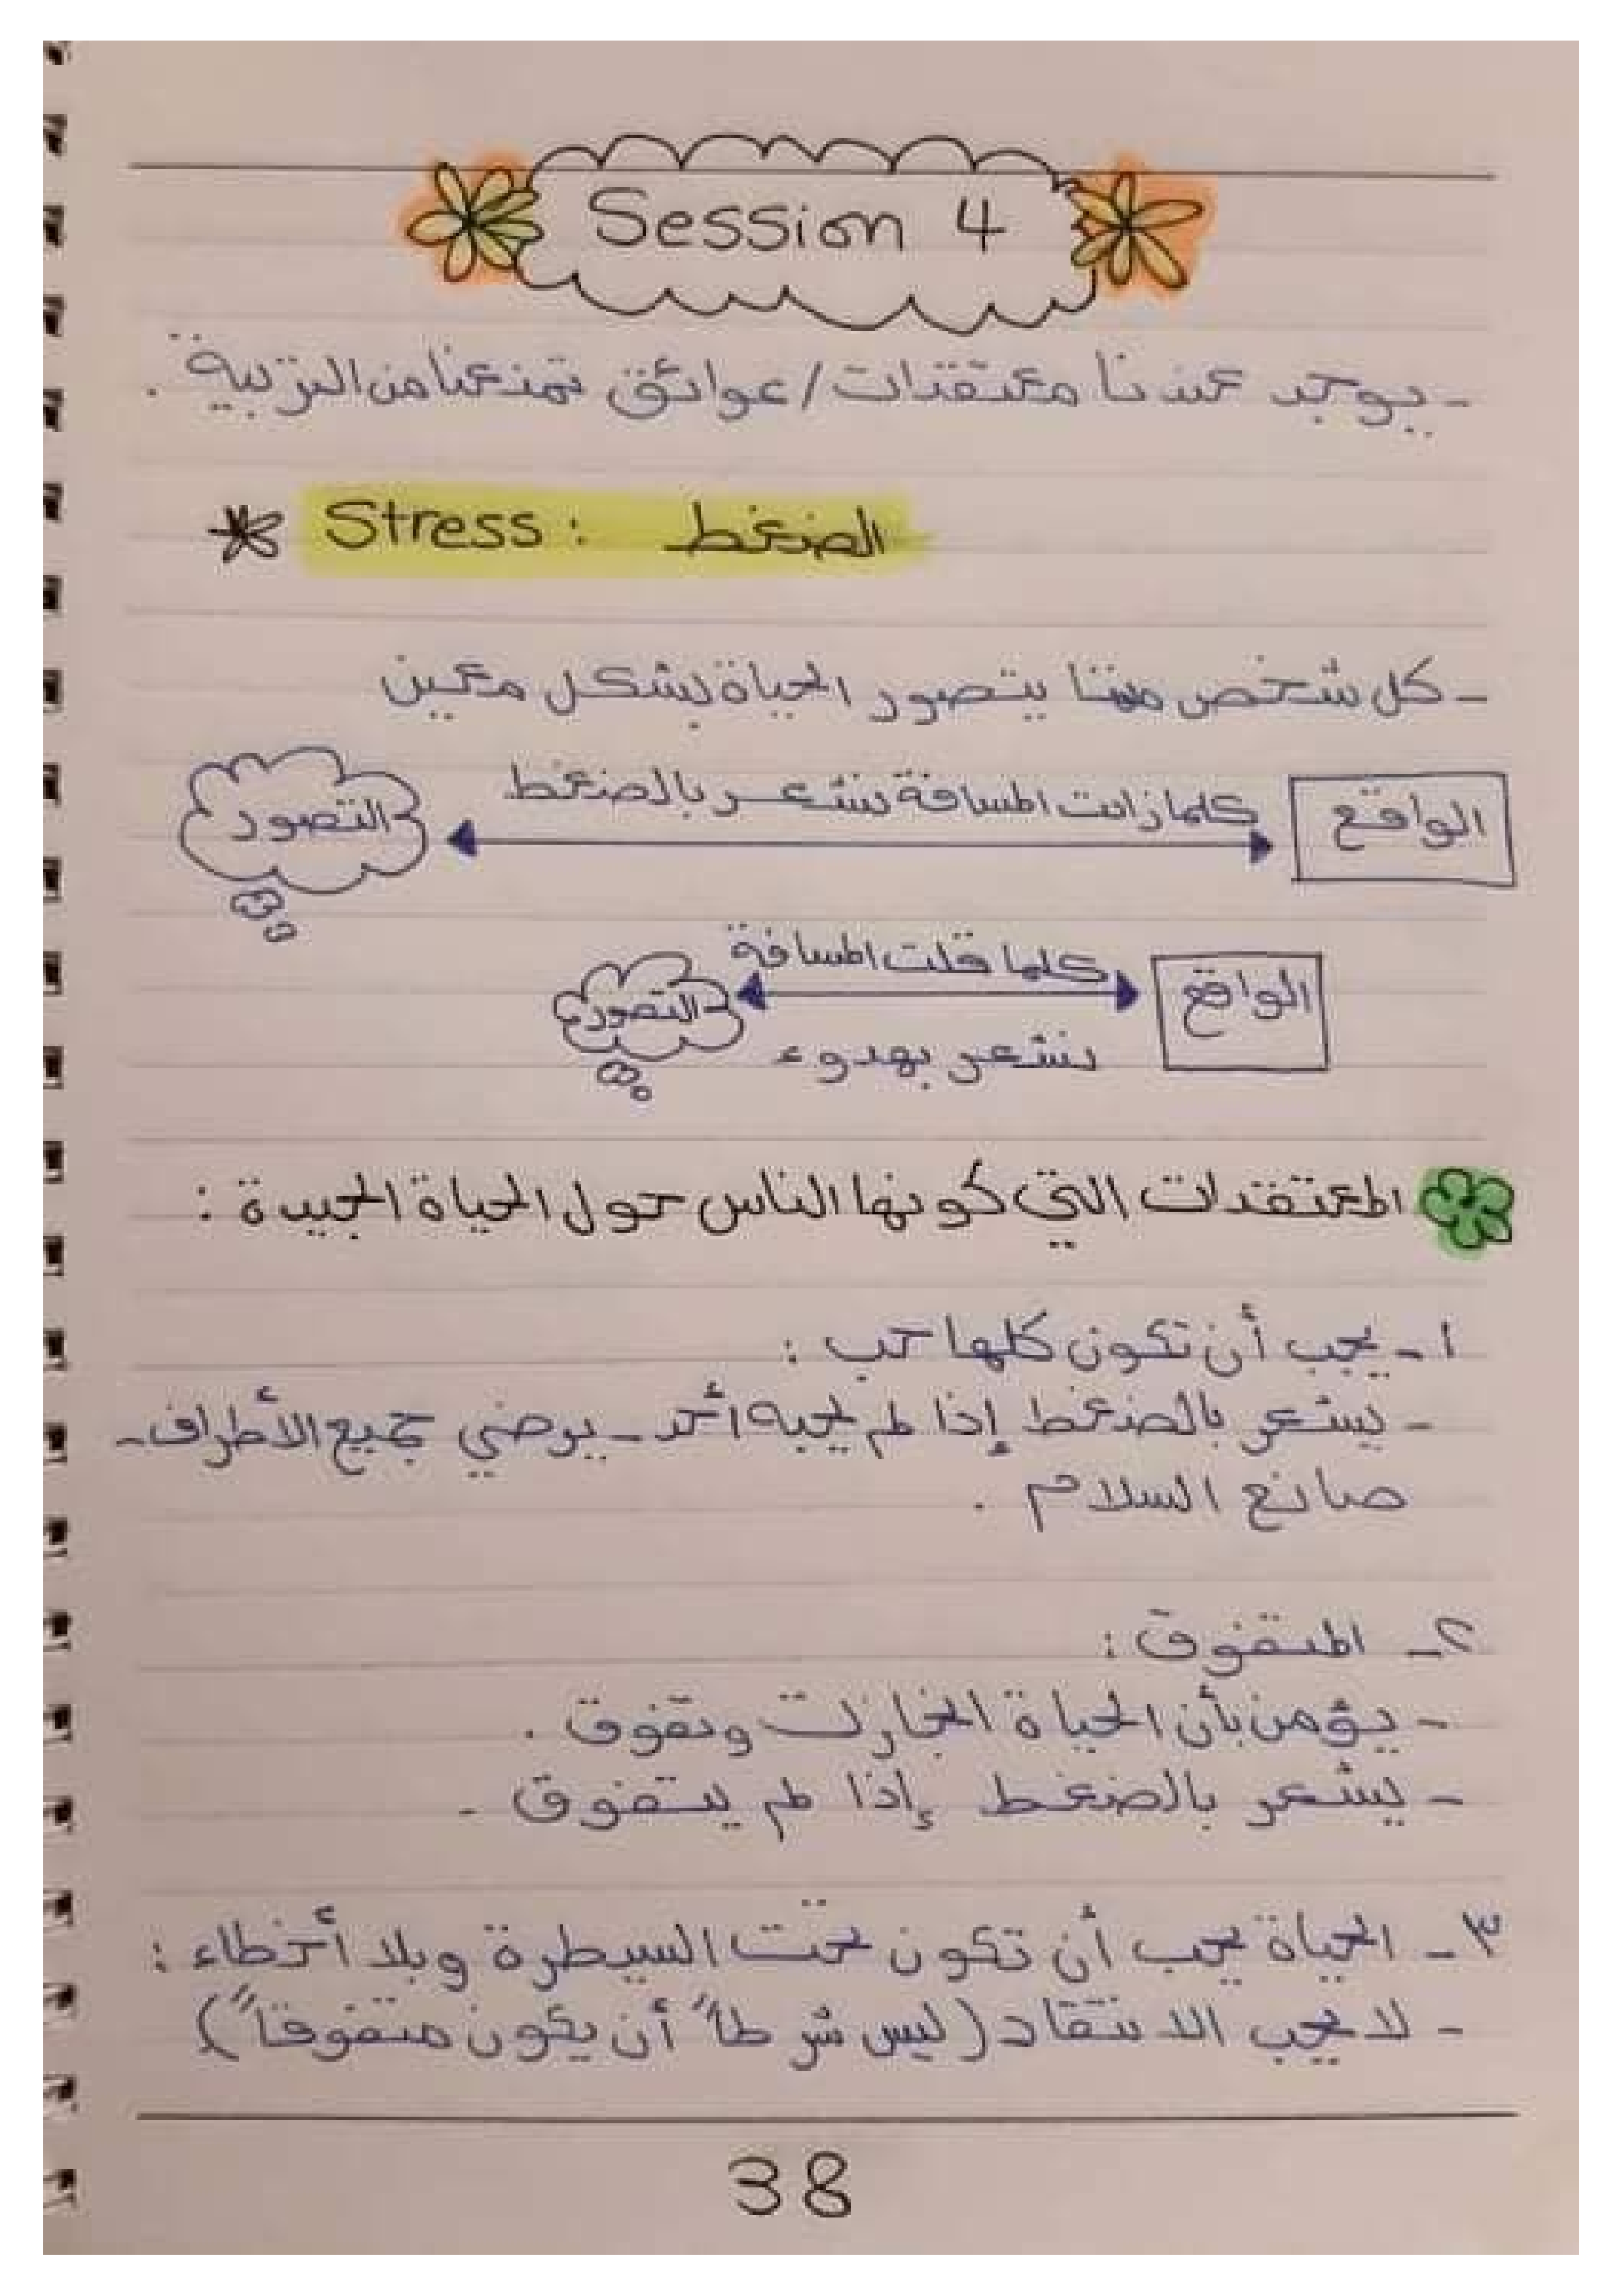 Session 4
- يوجد عندنا معتقدات/عوائق تمنعنا من التربية .
* Stress : الضغط
- كل شخص منا يتصور الحياة بشكل معين
الواقع كلما زادت المسافة نشعر بالضغط التصور
الواقع كلما قلت المسافة التصور
نشعر بهدوء
المعتقدات التي كونها الناس حول الحياة الجيدة :
١ - يجب أن تكون كلها حب :
- يشعر بالضغط إذا لم يحبه أحد - يرضي جميع الأطراف -
صانع السلام .
٢ - المتفوق :
- يؤمن بأن الحياة انجازات وتفوق .
- يشعر بالضغط إذا لم يتفوق -
٣ - الحياة يجب أن تكون تحت السيطرة وبلا أخطاء :
- لا يحب الانتقاد (ليس شرطاً أن يكون متفوقاً)
38